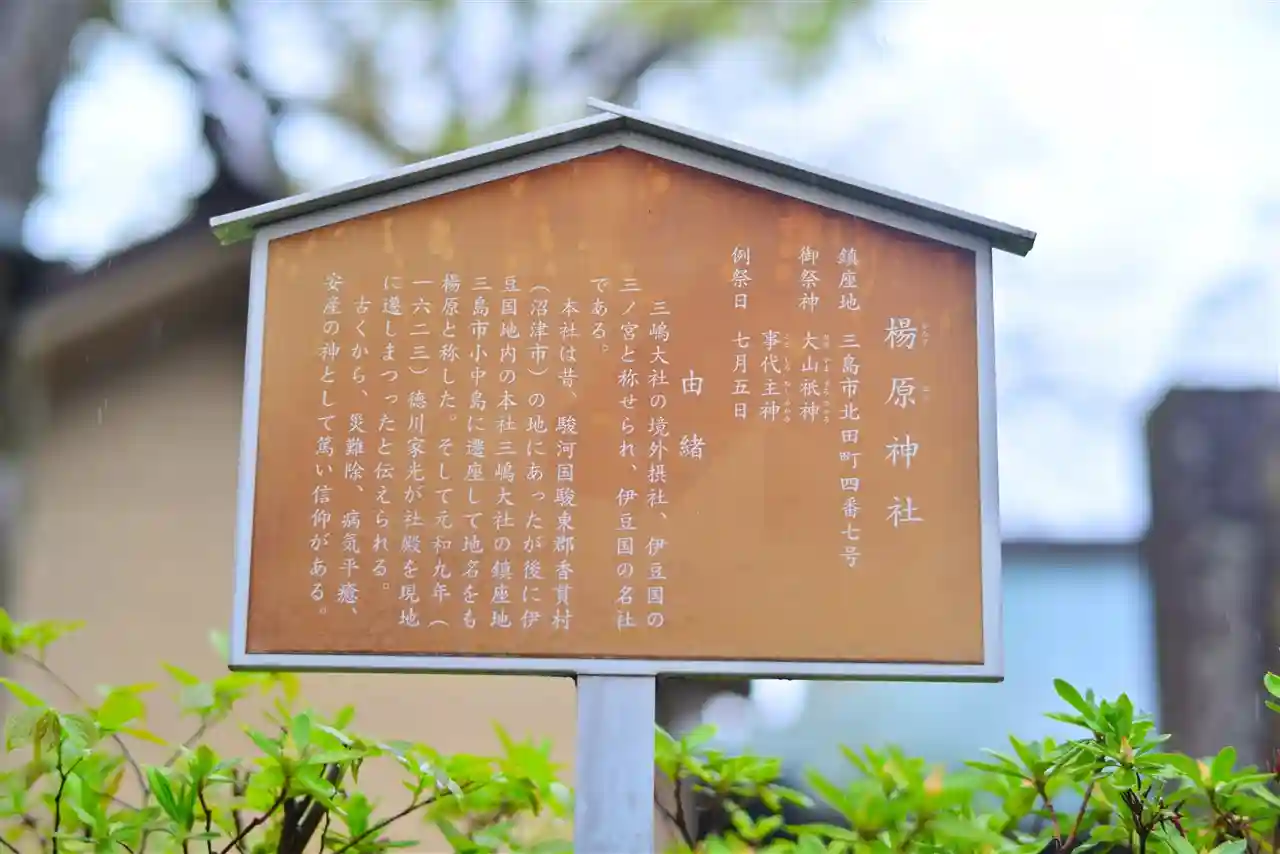 楊原神社
鎮座地 三島市北田町四番七号
御祭神 大山祇神
事代主神
例祭日 七月五日
由緒
三嶋大社の境外摂社、伊豆国の
三ノ宮と称せられ、伊豆国の名社
である。
本社は昔、駿河国駿東郡香貫村
（沼津市）の地にあったが後に伊
豆国地内の本社三嶋大社の鎮座地
三島市小中島に遷座して地名をも
楊原と称した。そして元和九年（
一六二三）徳川家光が社殿を現地
に遷しまつったと伝えられる。
古くから、災難除、病気平癒、
安産の神として篤い信仰がある。